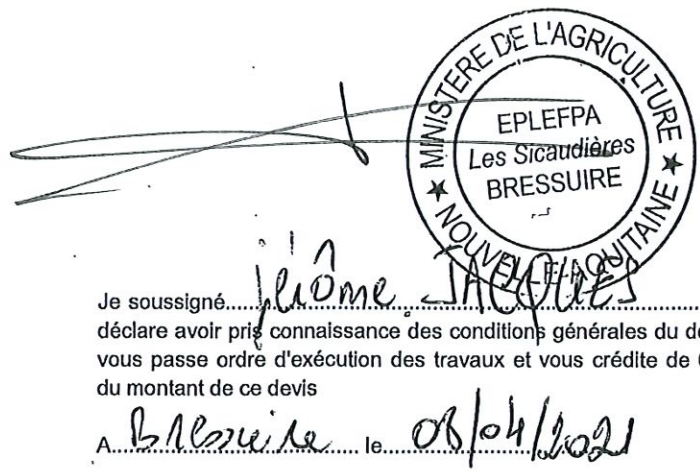 MINISTERE DE L'AGRICULTURE
EPLEFPA
Les Sicaudières
BRESSUIRE
★ NOUVELLE-AQUITAINE ★
Je soussigné....jérôme JACQUES....
déclare avoir pris connaissance des conditions générales du de
vous passe ordre d'exécution des travaux et vous crédite de
du montant de ce devis
A....Bressuire.... le....08/04/2021